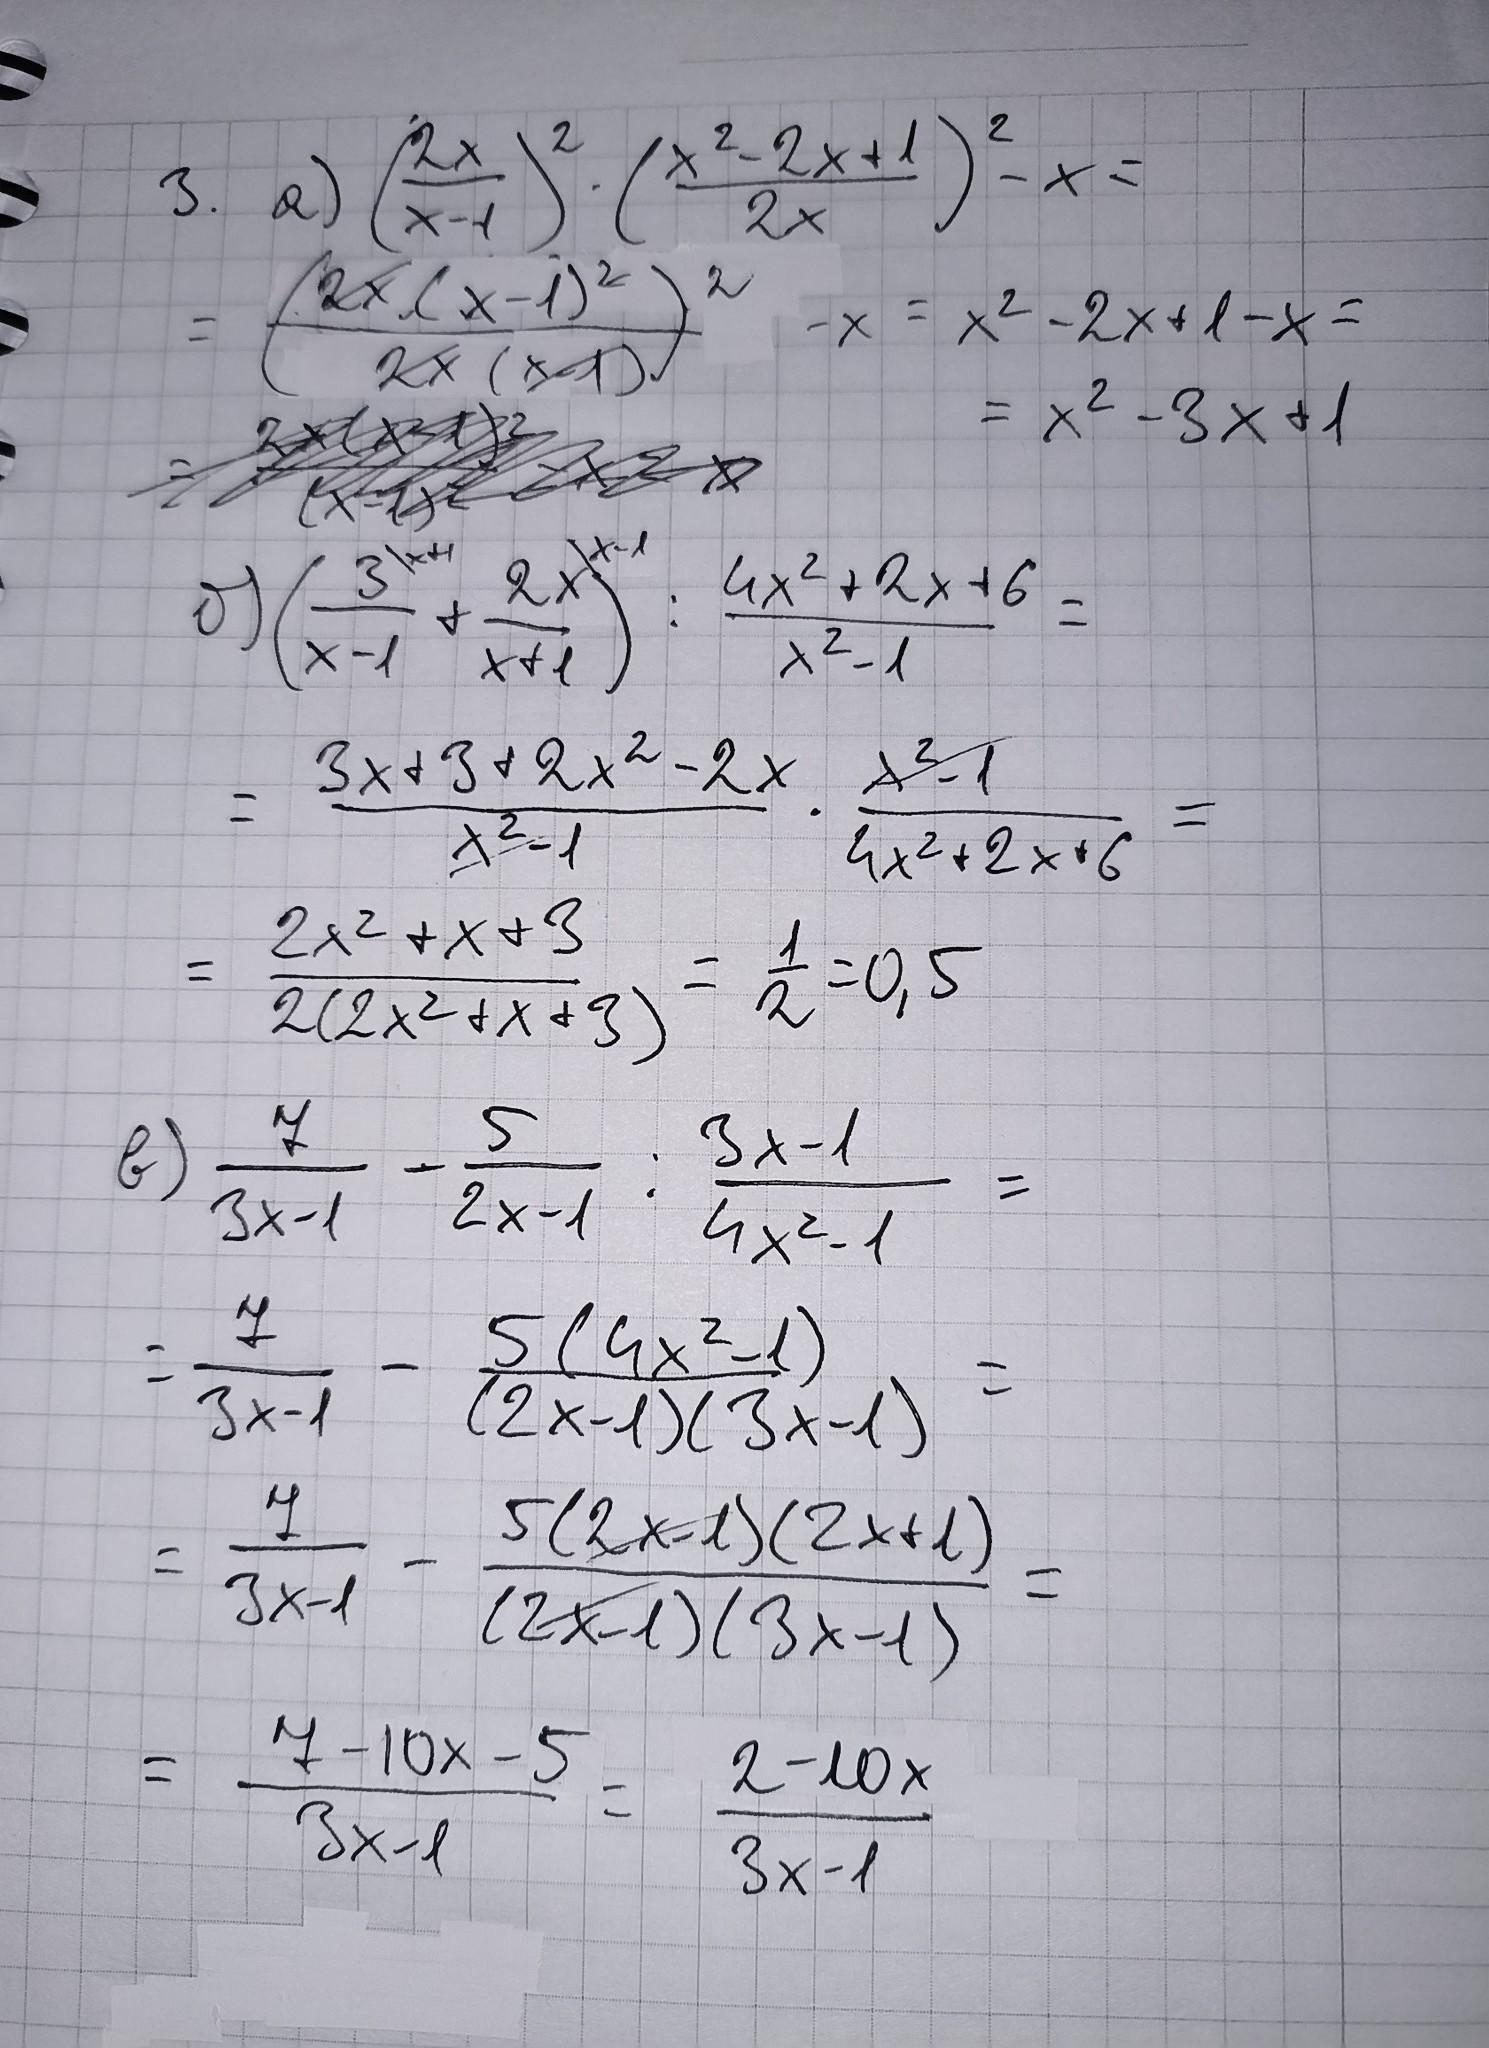 3. а) (2x/(x-1))² · ((x²-2x+1)/(2x))² - x =
= ((2x(x-1)²)/(2x(x-1)))² - x = x²-2x+1-x =
= x²-3x+1
= 2x(x-1)²/(x-1)x²
б) (3\x+1/(x-1) + 2x\x-1/(x+1)) : (4x²+2x+6)/(x²-1) =
= (3x+3+2x²-2x)/(x²-1) · (x²-1)/(4x²+2x+6) =
= (2x²+x+3)/(2(2x²+x+3)) = 1/2 = 0,5
в) 7/(3x-1) - 5/(2x-1) : (3x-1)/(4x²-1) =
= 7/(3x-1) - 5(4x²-1)/((2x-1)(3x-1)) =
= 7/(3x-1) - 5(2x-1)(2x+1)/((2x-1)(3x-1)) =
= (7-10x-5)/(3x-1) = (2-10x)/(3x-1)